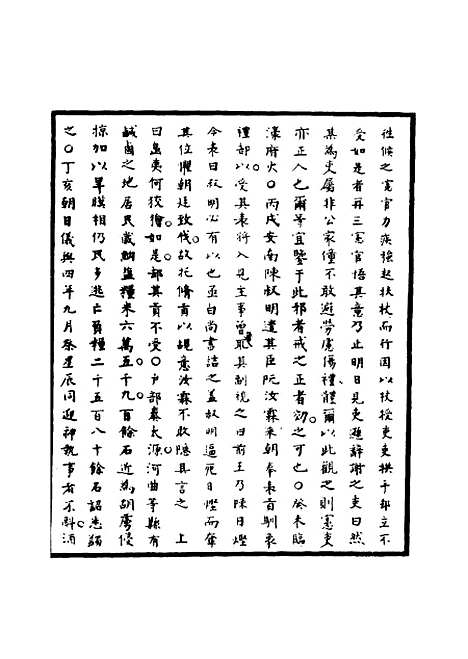 往候之憲官力疾強起扶杖而行因以杖授吏吏拱手却立不
受如是者再三憲官悟其意乃止明日見吏邀辭謝之吏曰然
某為吏屬非公家僮不敢避勞慮傷禮體爾以此觀之則憲吏
亦正人也爾等宜鑒于此邪者戒之正者勉之可也○癸未臨
濠府火○丙戌安南陳叔明遣其臣阮汝霖來朝奉表貢馴象
禮部以受其表將入見主事曾魯取其副視之曰前王乃陳日熞
今表曰叔明必有以也亟白尚書詰之蓋叔明逼死日熞而奪
其位懼朝廷致伐故托脩貢以覘意汝霖不敢隱具言之 上
曰島夷何狡獪如是却其貢不受○戶部奏太源河曲等縣有
鹹鹵之地居民歲納鹽糧米六萬五千九百餘石近為胡虜侵
掠加以旱暵相仍民多逃亡負糧二千五百八十餘石詔悉蠲
之○丁亥朝日儀與四年九月祭星辰同迎神執事者不㪺酒